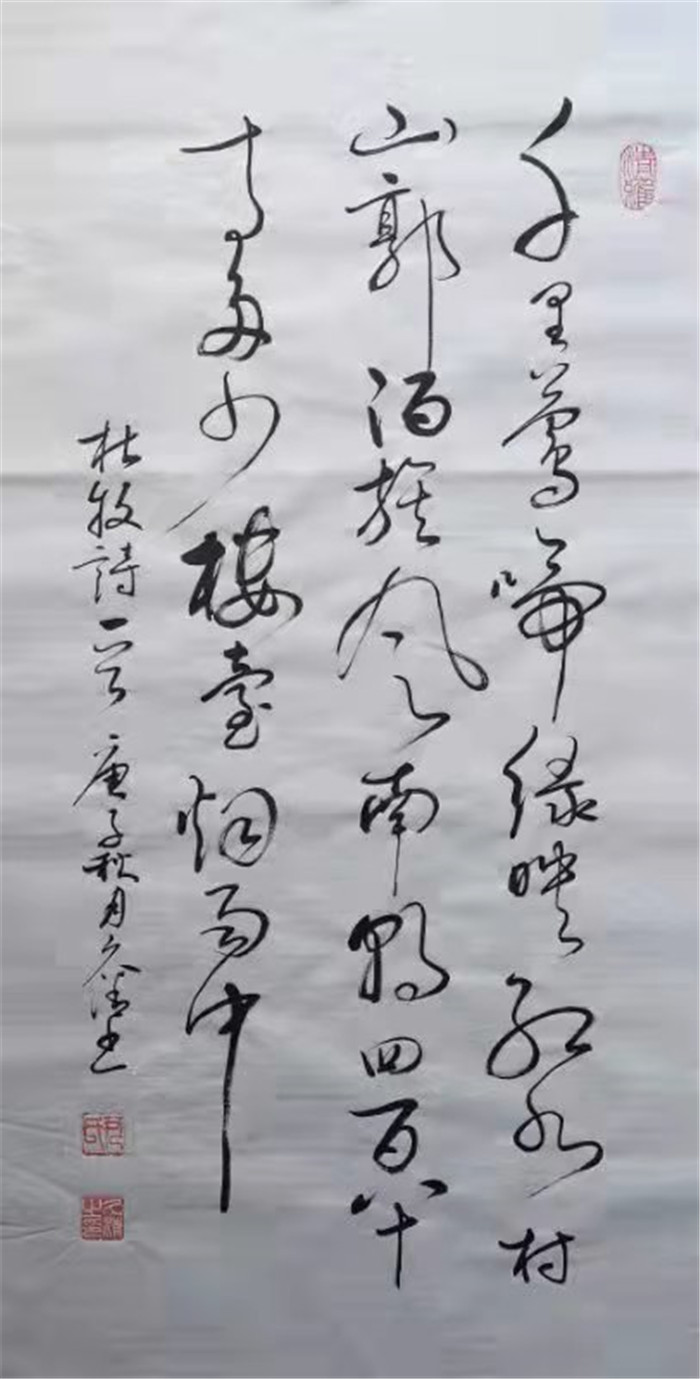 清雅
千里鶯啼緑映紅水村
山郭酒旗風南朝四百八十
寺多少樓臺烟雨中
杜牧詩一首庚子秋月久書